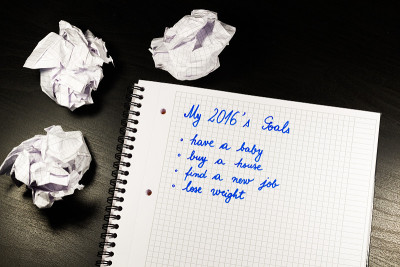 My 2016's Goals
• have a baby
• buy a house
• find a new job
• lose weight